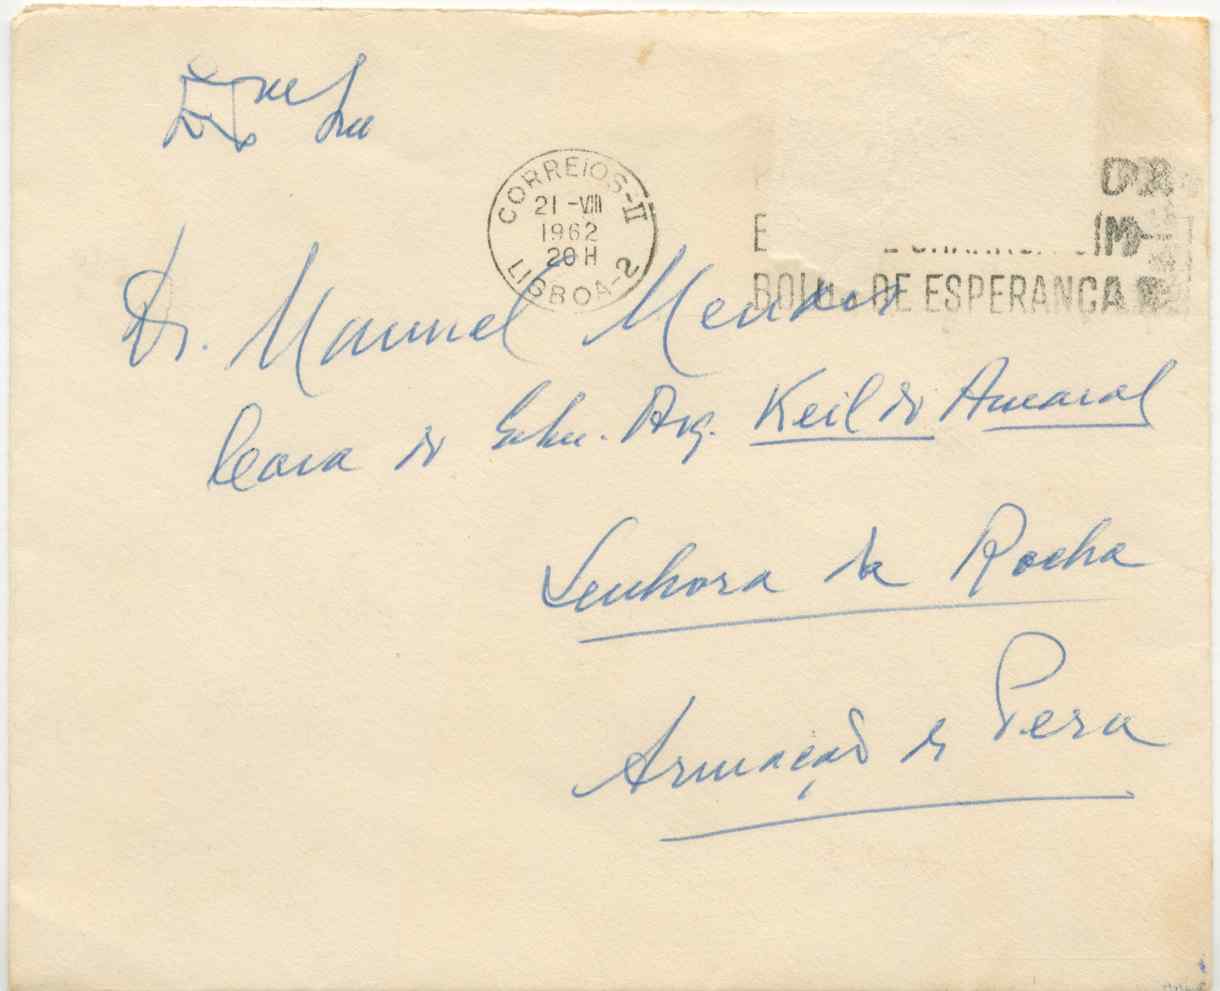 Exmo Snr
CORREIOS-II
21-VIII
1962
20H
LISBOA-2
DE ESPERANÇA
Dr. Manuel Mendes
Casa do Exmo. Arq. Keil do Amaral
Senhora da Rocha
Armação de Pera